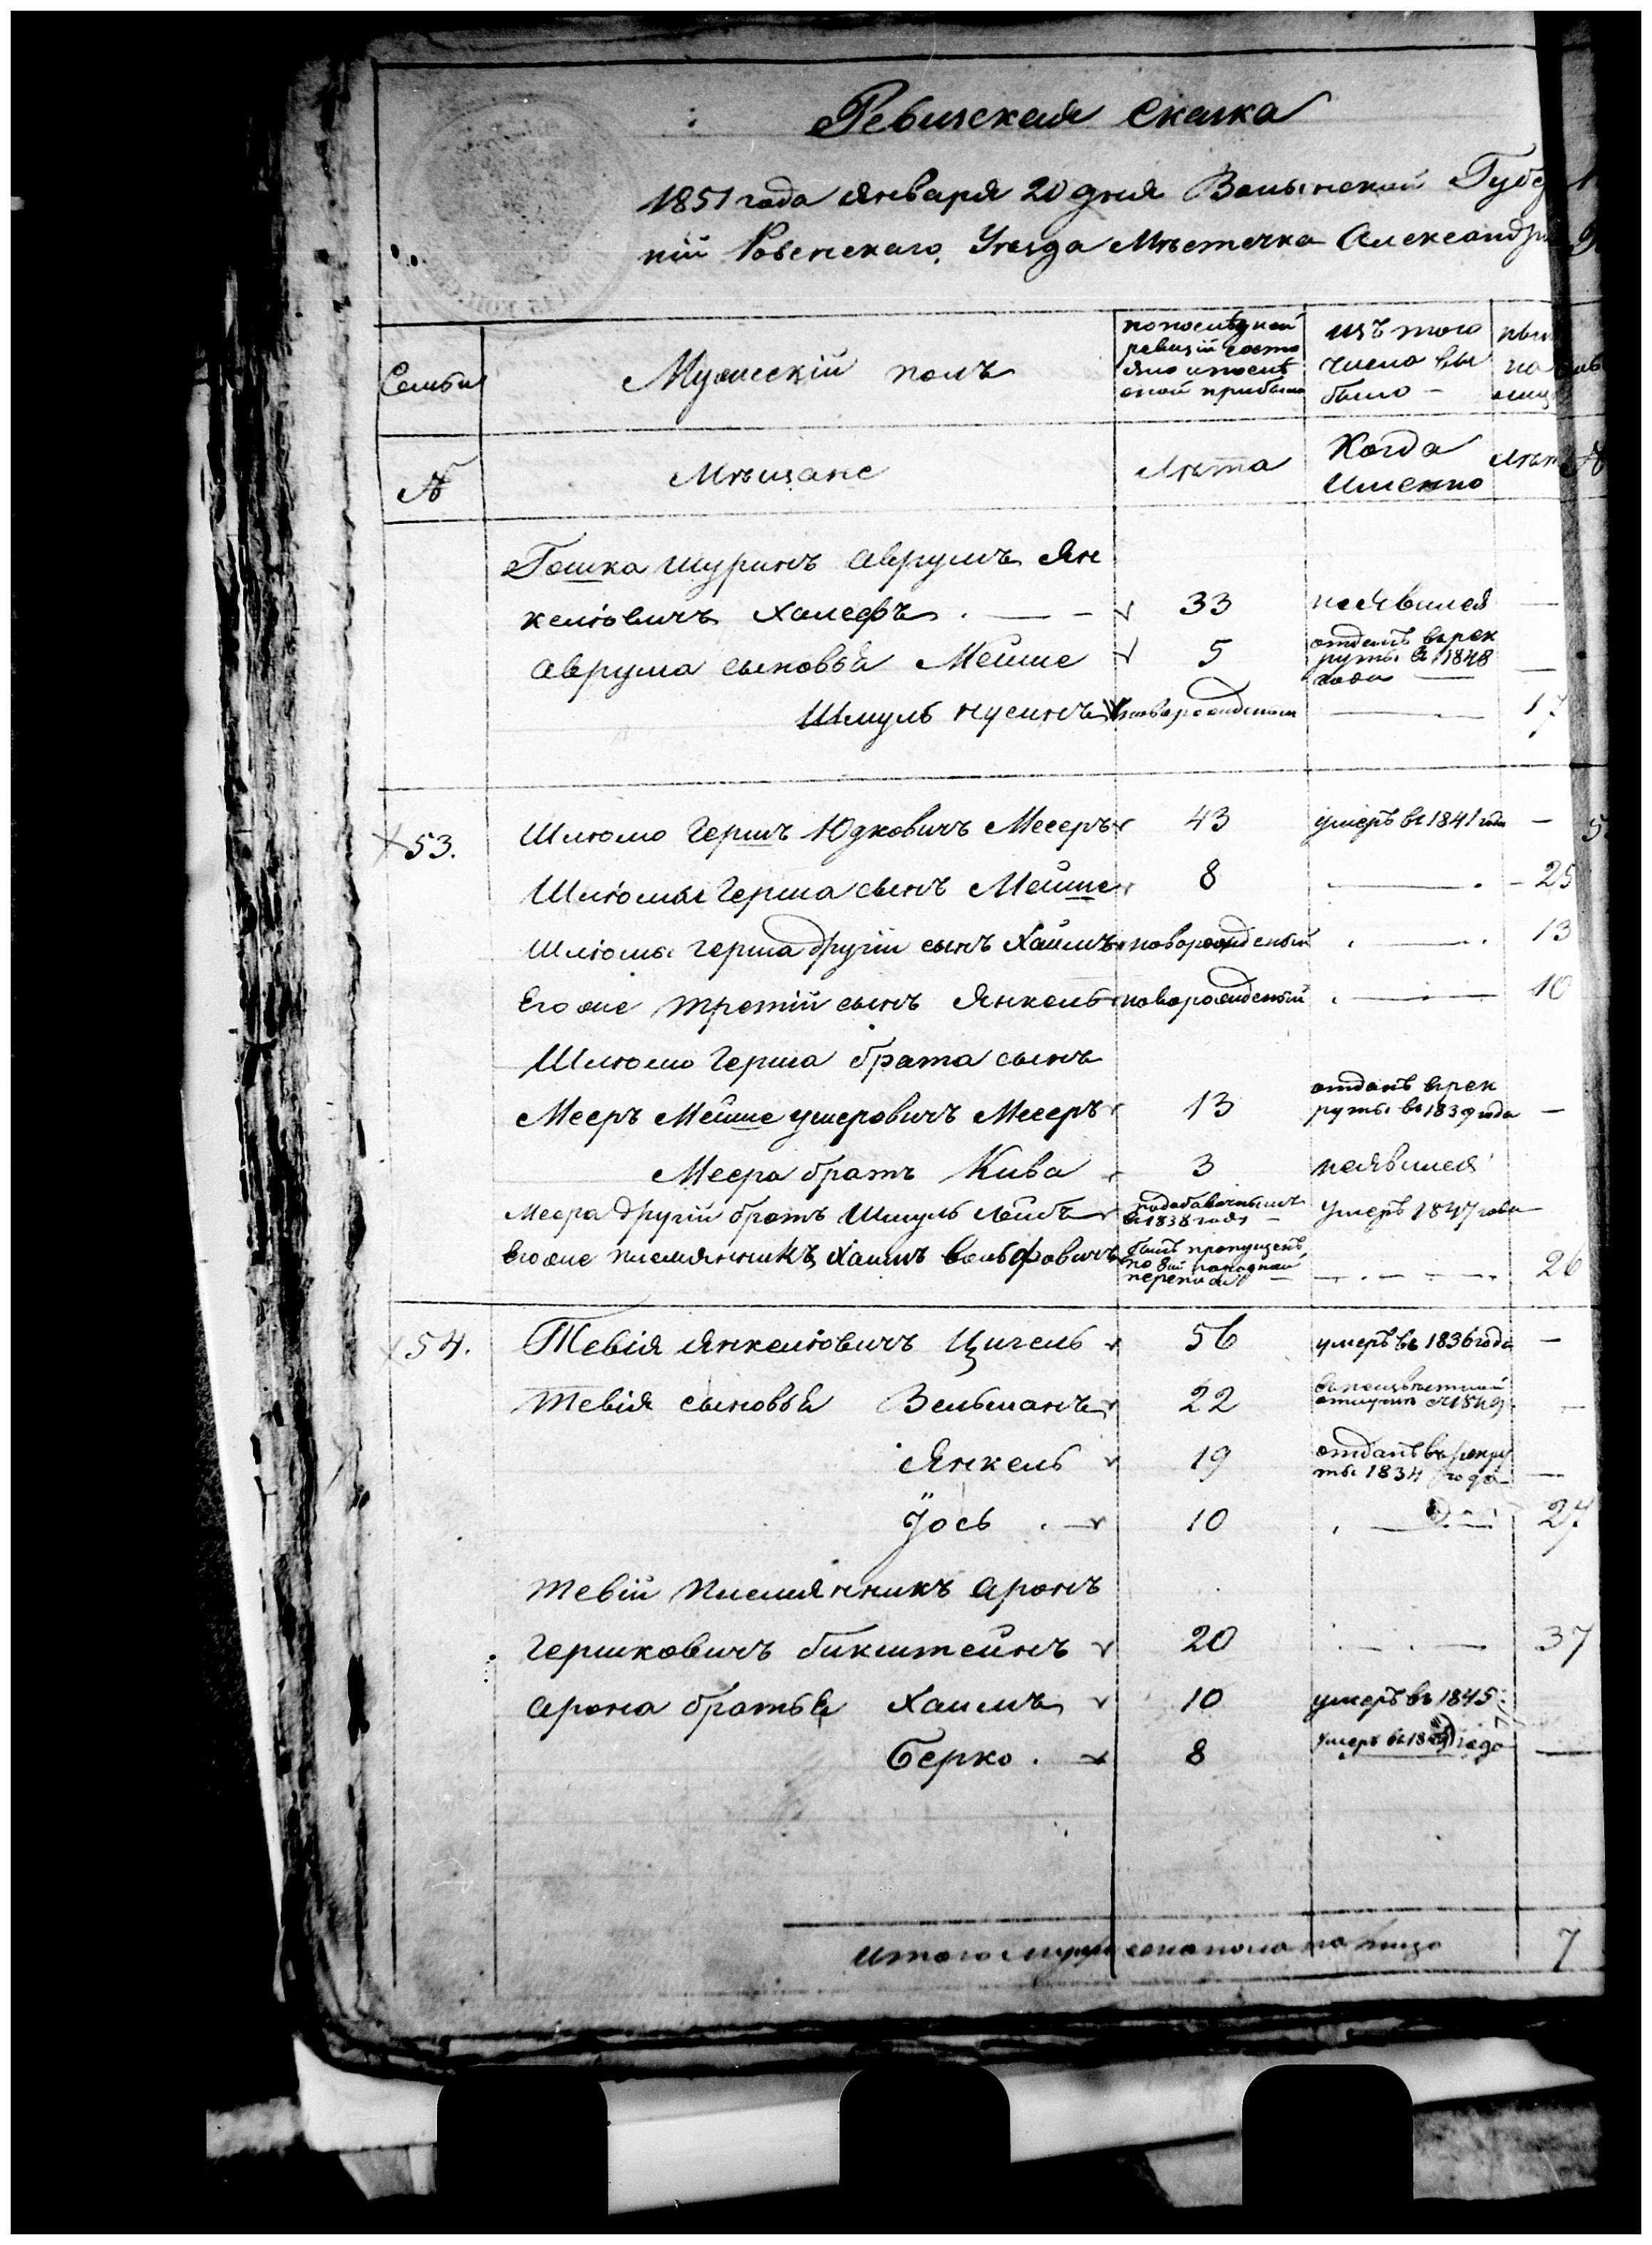 Ревизская сказка
1851 года Января 20 дня Волынской Губер
ніи Ровенскаго Уезда Мѣстечка Александрі
Семьи
Мужескій полъ
по последней ревизіи состо яло и после оной прибыло
изъ того числа вы было –
ныне на лицо
№
Мѣщане
Лѣта
Когда Именно
Лѣта
Гошка шуринъ Аврумъ Ян
келіовичъ Халефъ . — – 33 неявился —
Аврума сыновья Мейше 5 отданъ в рек руты в 1848 года —
Шмуль Нусинъ новорожденый — 17
53. Шлюмо Гершъ Юдковичъ Месеръ 43 умеръ в 1841 года –
Шліомы Герша сынъ Мейше 8 — 25
Шліомы Герша другій сынъ Хаимъ новорожденый — 13
Его же третій сынъ Янкель новорожденый — 10
Шлюмо Герша брата сынъ
Мееръ Мейше Ушеровичъ Месеръ 13 отданъ в рек руты в 1839 года –
Меера братъ Кива 3 неявился
Меера другій братъ Шмуль Лейбъ подобавочнымъ в 1838 года – умеръ 1847 года –
Его же племянникъ Хаимъ Вольфовичъ былъ пропущенъ по 8й народной переписи – — 26
54. Тевія Янкеліовичъ Цигель 56 умеръ в 1836 года –
Тевія сыновья Зельманъ 22 в 1849 –
Янкель 19 отданъ в рекру ты 1834 года —
Іось . — 10 — 27
Тевій племянникъ Аронъ
Гершковичъ Бикштейнъ 20 — 37
Арона братья Хаимъ 10 умеръ в 1845
Берко . — 8 умеръ в года —
Итого мужеска пола на лицо 7